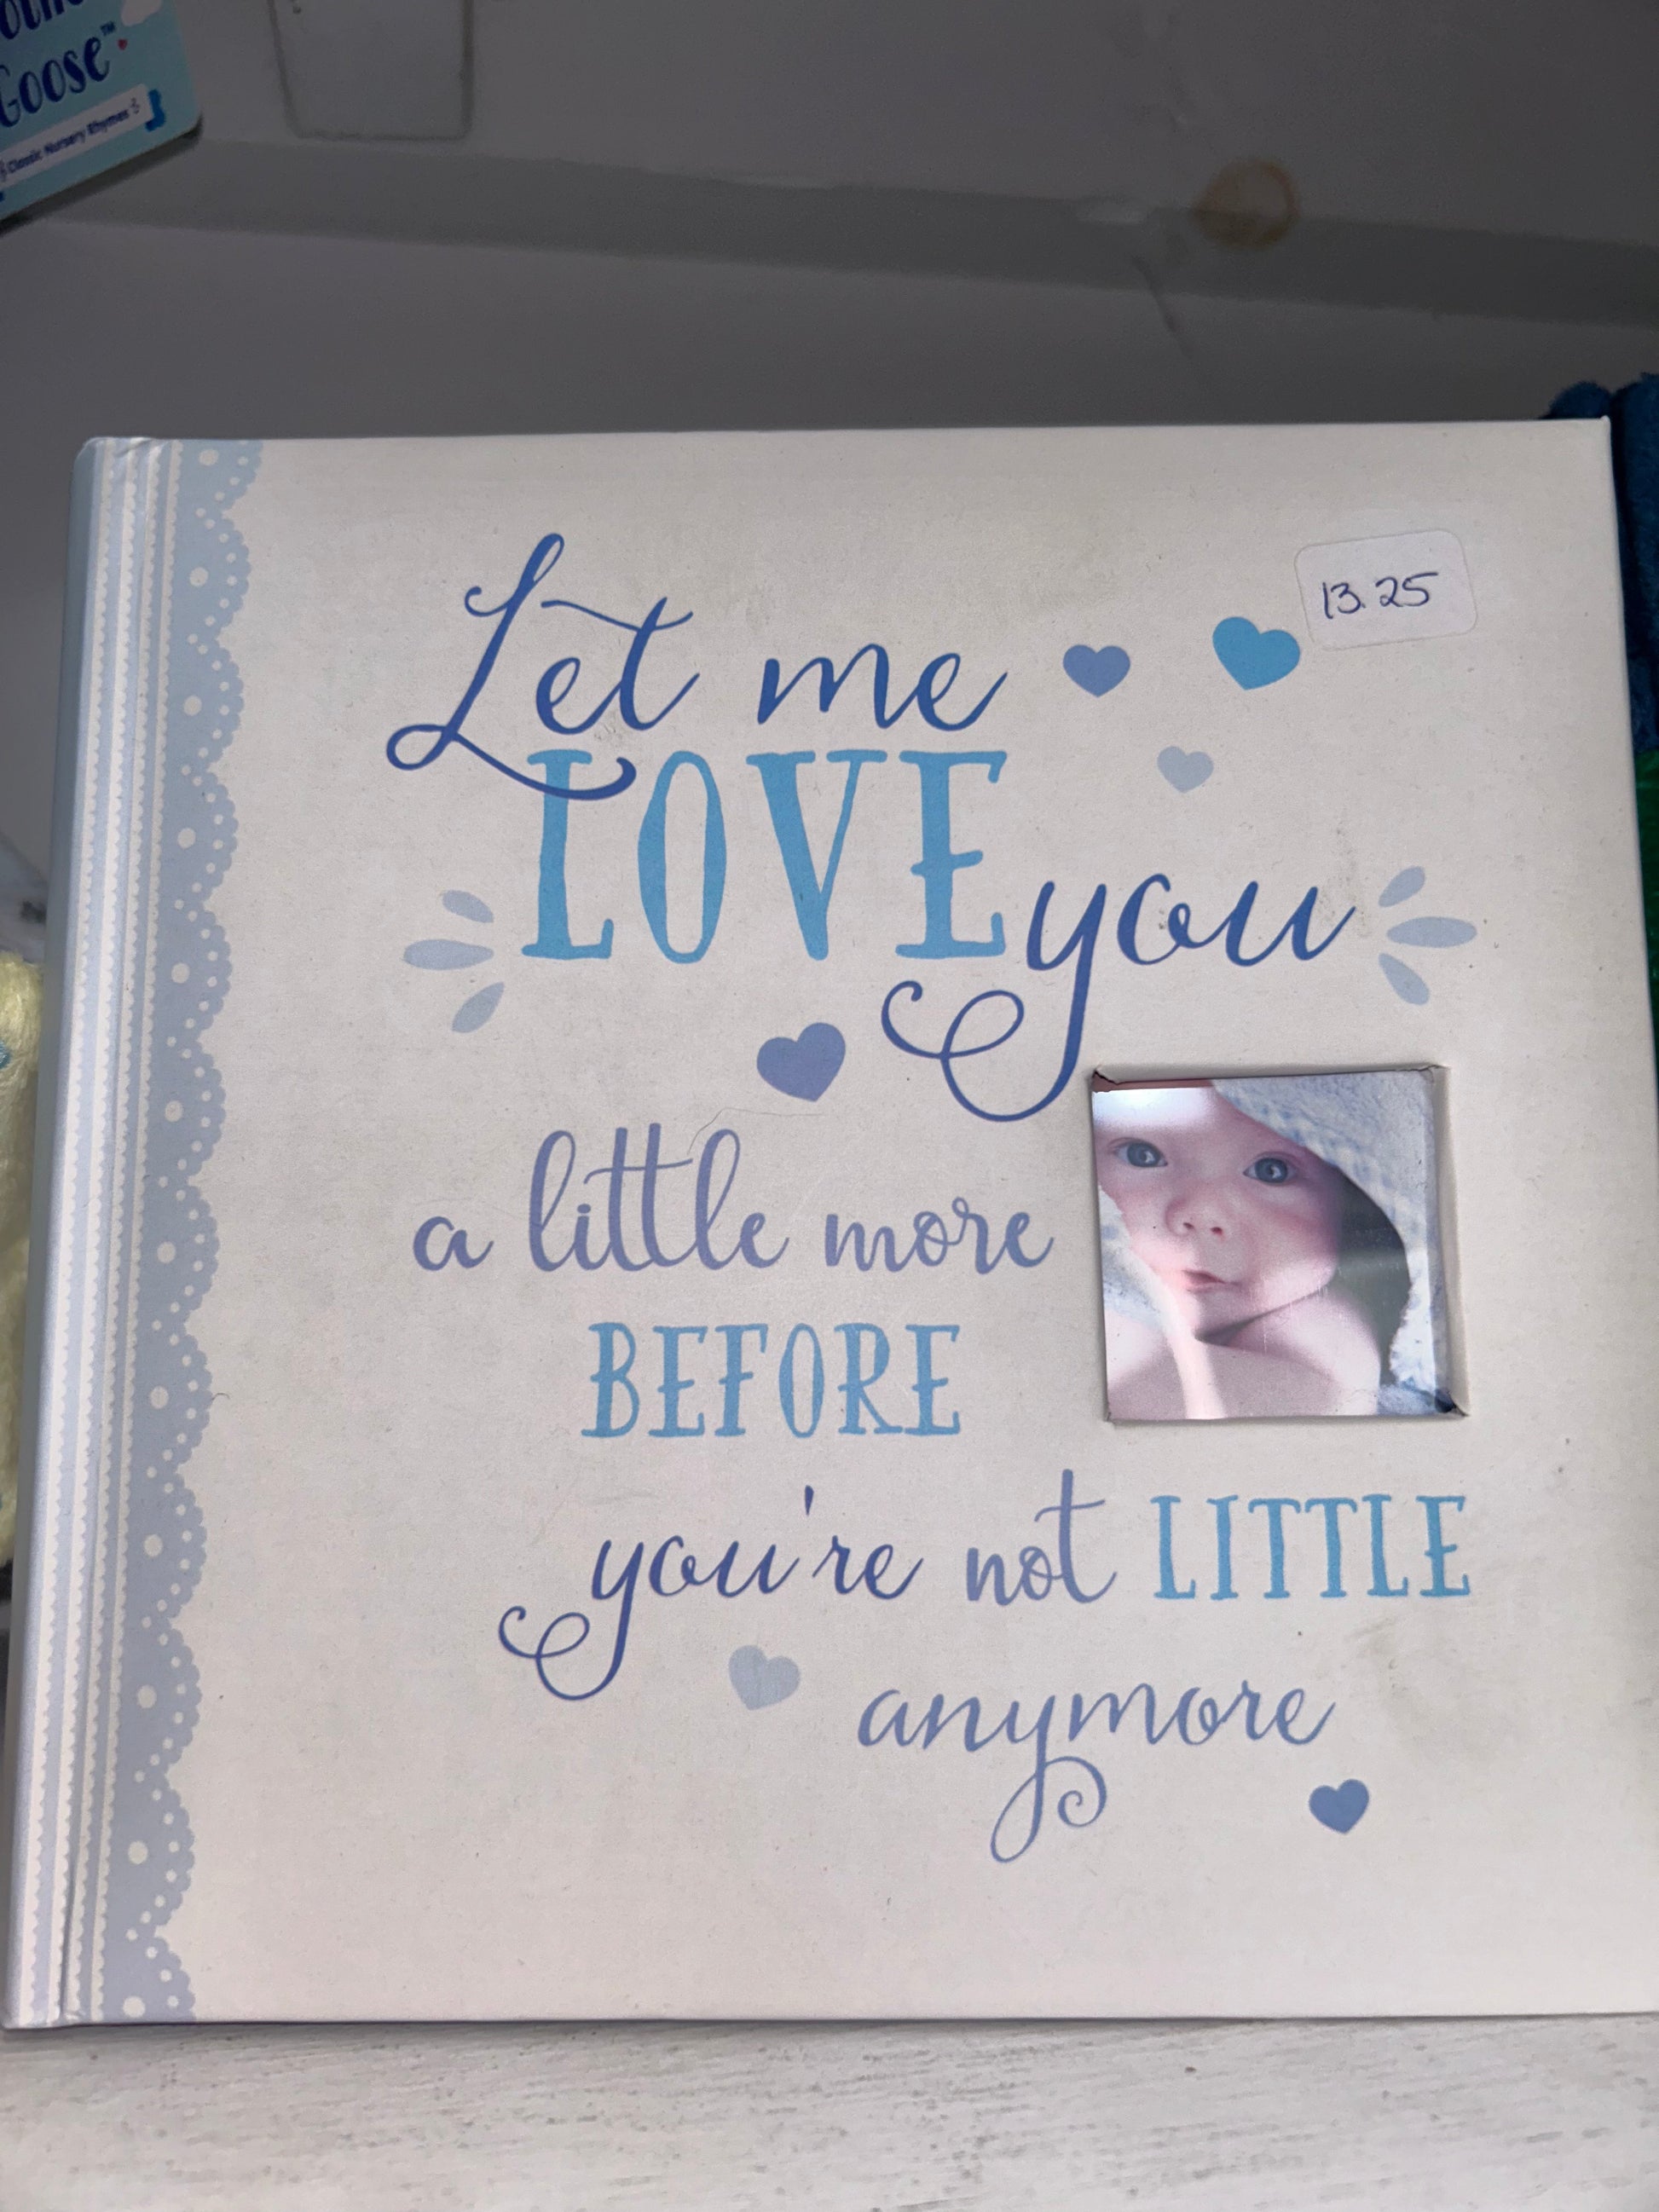 Goose™
Classic Nursery Rhymes
13.25
Let me
LOVE you
a little more
BEFORE
you're not LITTLE
anymore